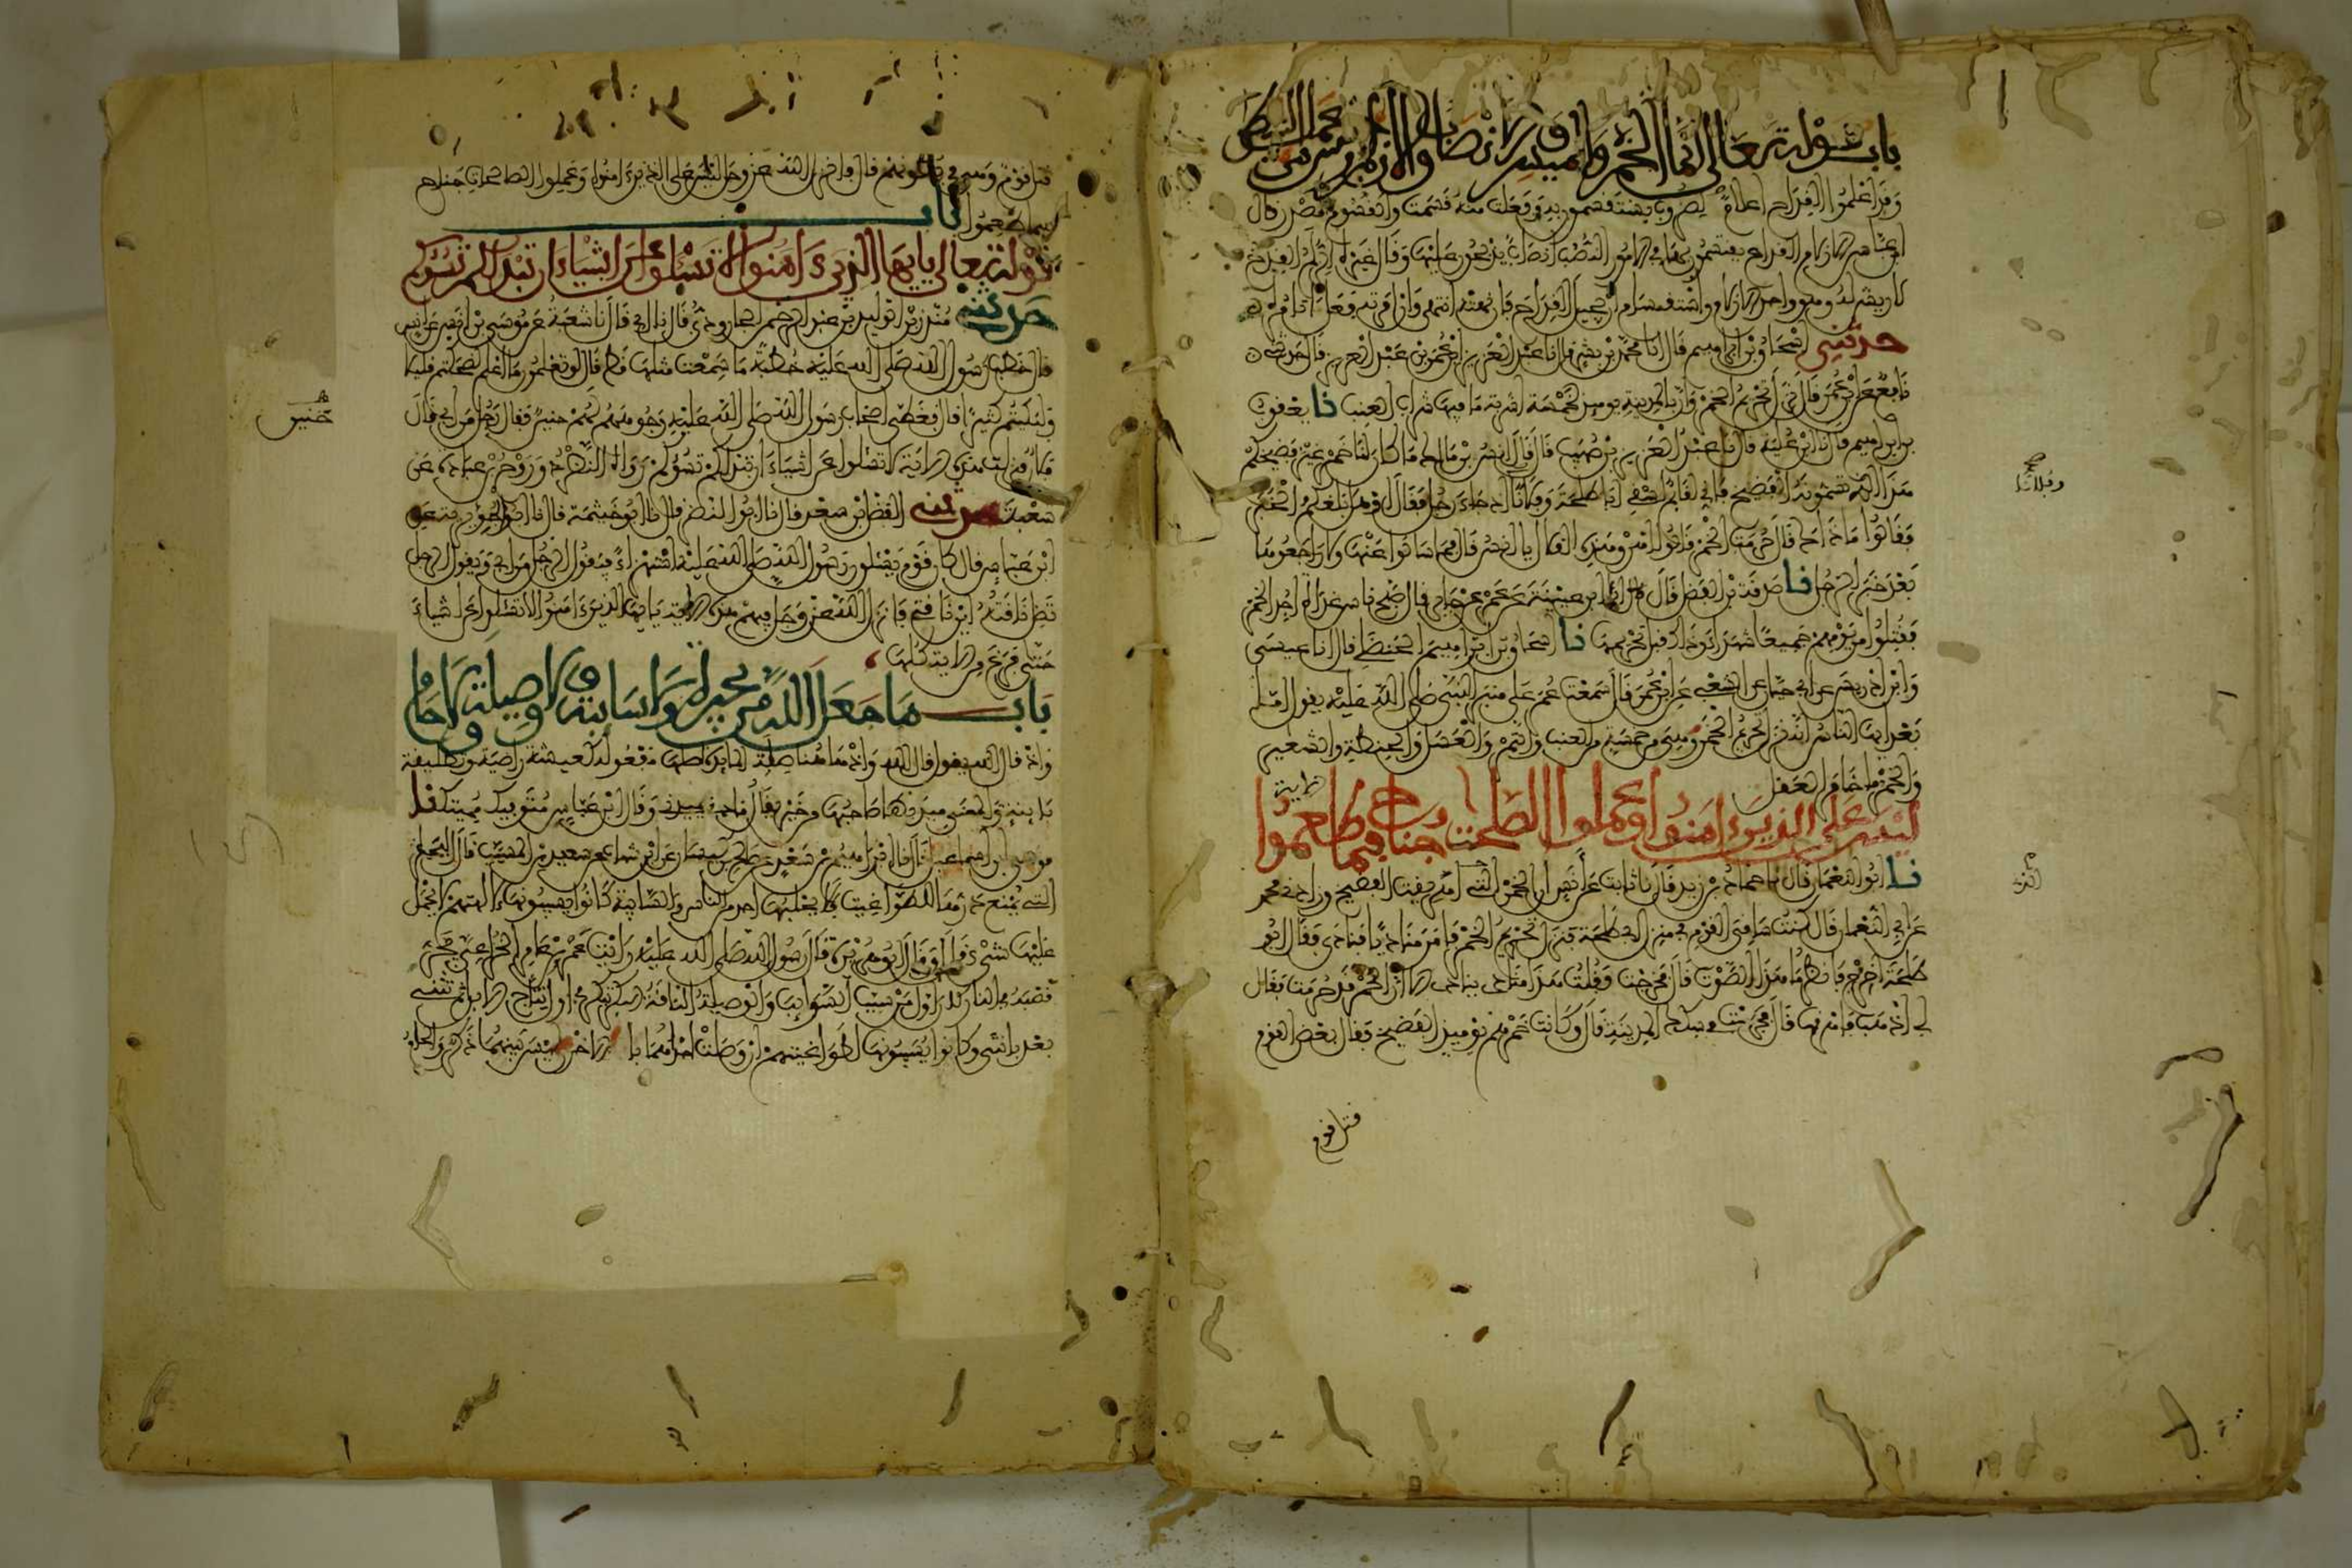 باب قوله تعالى إنما الخمر والميسر والأنصاب والأزلام رجس من عمل الشيطان
لا ريش له وهو واحد الأزلام والاستقسام أن يجيل القداح فإن نهته انتهى وإن أمرته فعل ما تأمره
حدثني إسحاق بن إبراهيم قال أنا محمد بن بشر قال نا عبد العزيز بن عمر بن عبد العزيز قال حدثني
نافع عن ابن عمر قال نزل تحريم الخمر وإن بالمدينة يومئذ لخمسة أشربة ما فيها شراب العنب نا يعقوب
بن إبراهيم قال نا ابن علية قال نا عبد العزيز بن صهيب قال قال أنس بن مالك ما كان لنا خمر غير فضيخكم
هذا الذي تسمونه الفضيخ فإني لقائم أسقي أبا طلحة وفلانا إذ جاء رجل فقال وهل بلغكم الخبر
فقالوا ما ذاك قال حرمت الخمر قالوا أهرق هذه القلال يا أنس قال فما سألوا عنها ولا راجعوها
بعد خبر الرجل نا صدقة بن الفضل قال أنا ابن عيينة عن عمرو عن جابر قال صبح ناس غداة أحد الخمر
فقتلوا من يومهم جميعا شهداء وذلك قبل تحريمها نا إسحاق بن إبراهيم الحنظلي قال أنا عيسى
وابن إدريس عن أبي حيان عن الشعبي عن ابن عمر قال سمعت عمر على منبر النبي صلى الله عليه يقول أما
بعد أيها الناس إنه نزل تحريم الخمر وهي من خمسة من العنب والتمر والعسل والحنطة والشعير
والخمر ما خامر العقل
ليس على الذين ءامنوا وعملوا الصلحت جناح فيما طعموا
نا أبو النعمان قال نا حماد بن زيد قال نا ثابت عن أنس أن الخمر التي أهريقت الفضيخ وزادني محمد
عن أبي النعمان قال كنت ساقي القوم في منزل أبي طلحة فنزل تحريم الخمر فأمر مناديا فنادى فقال أبو
طلحة اخرج فانظر ما هذا الصوت قال فخرجت فقلت هذا مناد ينادي ألا إن الخمر قد حرمت فقال
لي اذهب فأهرقها قال فجرت في سكك المدينة قال وكانت خمرهم يومئذ الفضيخ فقال بعض القوم
قتل قوم
قتل قوم وهي في بطونهم قال فأنزل الله عز وجل ليس على الذين ءامنوا وعملوا الصالحات جناح
فيما طعموا باب
قوله تعالى يايها الذين ءامنوا لا تسئلوا عن أشياء ان تبد لكم تسؤكم
حدثني منذر بن الوليد بن عبد الرحمن الجارودي قال نا أبي قال نا شعبة عن موسى بن أنس عن أنس
قال خطب رسول الله صلى الله عليه خطبة ما سمعت مثلها قط قال لو تعلمون ما أعلم لضحكتم قليلا
ولبكيتم كثيرا قال فغطى أصحاب رسول الله صلى الله عليه وجوههم لهم حنين فقال رجل من أبي قال
فلان فنزلت هذه الآية لا تسئلوا عن أشياء ان تبد لكم تسؤكم رواه النضر وروح بن عبادة عن
شعبة حدثني الفضل بن سهل قال نا أبو النضر قال نا أبو خيثمة قال نا أبو الجويرية عن
ابن عباس قال كان قوم يسئلون رسول الله صلى الله عليه استهزاء فيقول الرجل من أبي ويقول الرجل
تضل ناقته أين ناقتي فأنزل الله عز وجل فيهم هذه الآية يايها الذين ءامنوا لا تسئلوا عن أشياء
حتى فرغ من الآية كلها
باب ما جعل الله من بحيرة ولا سائبة ولا وصيلة ولا حام
وإذ قال الله يقول قال الله وإذ هاهنا صلة المائدة أصلها مفعولة كعيشة راضية وتطليقة
بائنة والمعنى ميد بها صاحبها من خير يقال مادني يميدني وقال ابن عباس متوفيك مميتك نا
موسى بن إسماعيل قال نا إبراهيم بن سعد عن صالح بن كيسان عن ابن شهاب عن سعيد بن المسيب قال البحيرة
التي يمنع درها للطواغيت فلا يحلبها أحد من الناس والسائبة كانوا يسيبونها لآلهتهم لا يحمل
عليها شيء قال وقال أبو هريرة قال رسول الله صلى الله عليه رأيت عمرو بن عامر الخزاعي يجر
قصبه في النار كان أول من سيب السوائب والوصيلة الناقة البكر تبكر في أول نتاج الإبل ثم تثني
بعد بأنثى وكانوا يسيبونها لطواغيتهم إن وصلت إحداهما بالأخرى ليس بينهما ذكر والحام
حنين